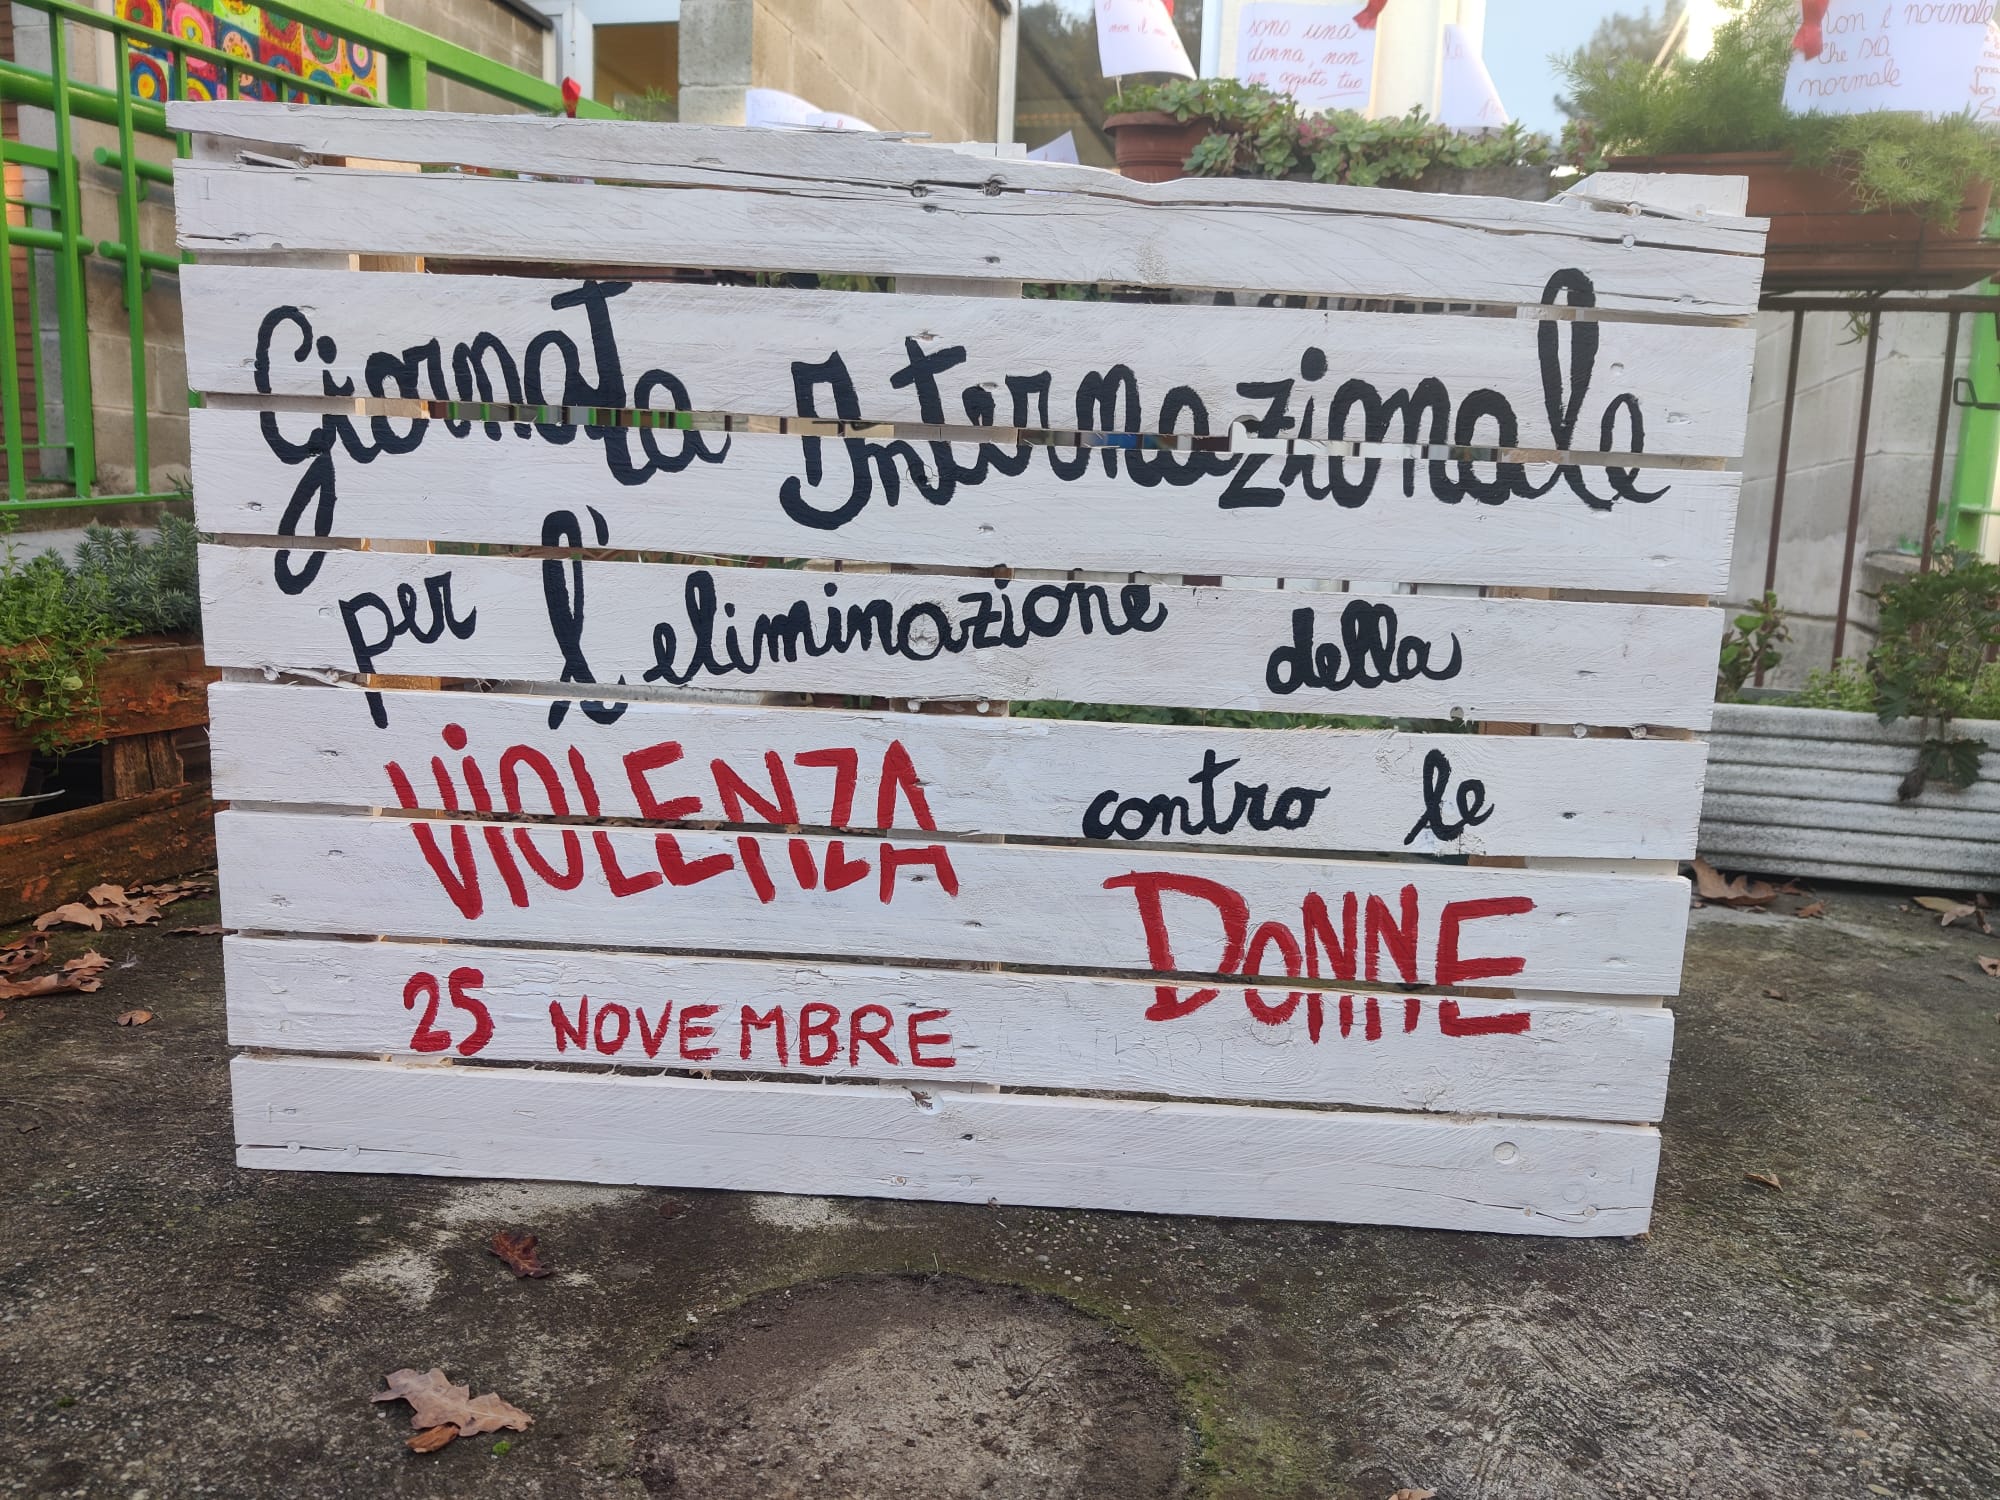 non è
sono una
donna, non
un oggetto tuo
non è normale
che sia
normale
Giornata Internazionale
per l'eliminazione della
VIOLENZA contro le
DONNE
25 NOVEMBRE